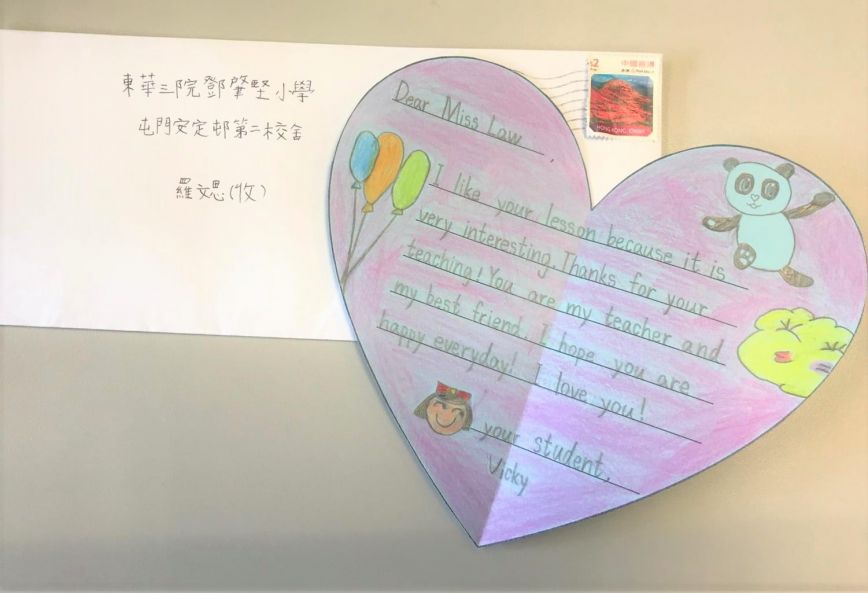 東華三院鄧肇堅小學
屯門安定邨第二校舍
羅文思(收)
$2
中國香港
HONG KONG, CHINA
Dear Miss Law,
I like your lesson because it is
very interesting. Thanks for your
teaching! You are my teacher and
my best friend. I hope you are
happy everyday! I love you!
your student,
Vicky